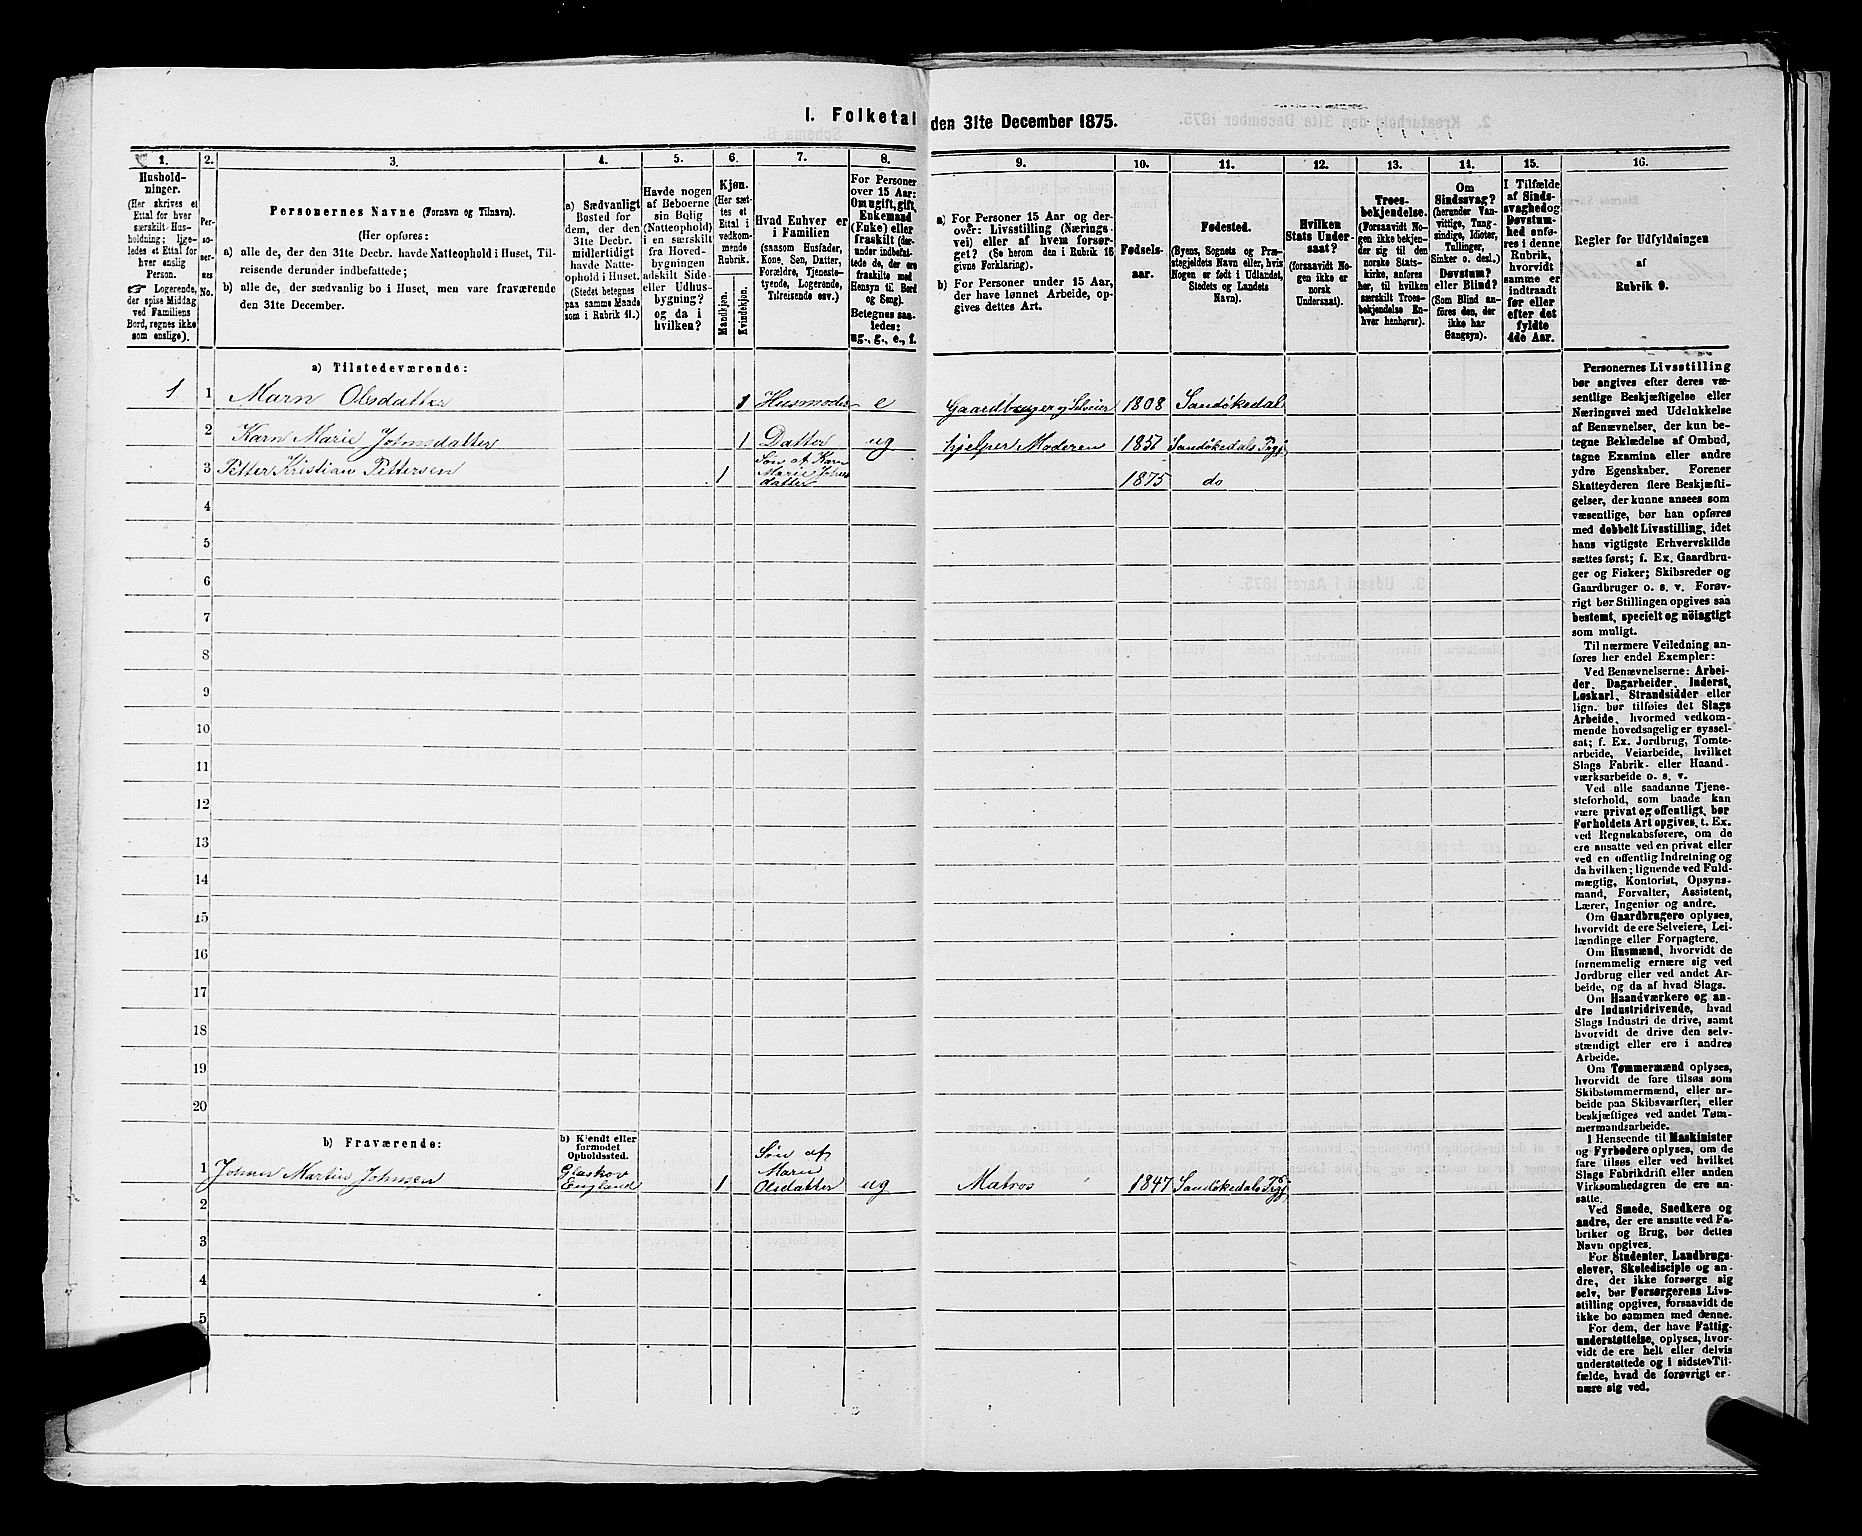 I. Folketal den 31te December 1875.
1. 2. 3. 4. 5. 6. 7. 8. 9. 10. 11. 12. 13. 14. 15. 16.
Hushold-
ninger.
(Her skrives et
Ettal for hver
særskilt Hus-
holdning; lige-
ledes et Ettal for
hver enslig
Person.
☞ Logerende,
der spise Middag
ved Familiens
Bord, regnes ikke
som enslige).
Per-
so-
ner-
nes
No.
Personernes Navne (Fornavn og Tilnavn).
(Her opføres:
a) alle de, der den 31te Decbr. havde Natteophold i Huset, Til-
reisende derunder indbefattede;
b) alle de, der sædvanlig bo i Huset, men vare fraværende
den 31te December.
a) Sædvanligt
Bosted for
dem, der den
31te Decbr.
midlertidigt
havde Natte-
ophold i Huset.
(Stedet betegnes
paa samme Maade
som i Rubrik 11.)
Havde nogen
af Beboerne
sin Bolig
(Natteophold)
i en særskilt
fra Hoved-
bygningen
adskilt Side-
eller Udhus-
bygning?
og da i
hvilken?
Kjøn.
(Her sæt-
tes et
Ettal i
vedkom-
mende
Rubrik.
Mandkjøn.
Kvindekjøn.
Hvad Enhver er
i Familien
(saasom Husfader,
Kone, Søn, Datter,
Forældre, Tjeneste-
tyende, Logerende,
Tilreisende osv.)
For Personer
over 15 Aar:
Om ugift, gift,
Enkemand
(Enke) eller
fraskilt (der-
under indbefat-
tede de, der ere
fraskilte med
Hensyn til Bord
og Seng).
Betegnes saa-
ledes:
ug., g., e., f.
a) For Personer 15 Aar og der-
over: Livsstilling (Nærings-
vei) eller af hvem forsør-
get? (Se herom den i Rubrik 16
givne Forklaring).
b) For Personer under 15 Aar,
der have lønnet Arbeide, op-
gives dettes Art.
Fødsels-
aar.
Fødested.
(Byens, Sognets og Præ-
stegjeldets Navn eller, hvis
Nogen er født i Udlandet,
Stedets og Landets
Navn).
Hvilken
Stats Under-
saat?
(forsaavidt No-
gen ikke er
norsk
Undersaat).
Troes-
bekjendelse.
(Forsaavidt No-
gen ikke bekjen-
der sig til den
norske Stats-
kirke, anføres
her, til hvilken
særskilt Troes-
bekjendelse En-
hver henhører).
Om
Sindssvag?
(herunder Van-
vittige, Tung-
sindige, Idioter,
Tullinger,
Sinker o. desl.)
Døvstum?
eller Blind?
(Som Blind an-
føres den, der
ikke har
Gangsyn).
I Tilfælde
af Sinds-
svaghed og
Døvstum-
hed anfø-
res i denne
Rubrik,
hvorvidt
samme er
indtraadt
før eller
efter det
fyldte
4de Aar.
Regler for Udfyldningen
af
Rubrik 9.
a) Tilstedeværende:
1 1 Marn Olsdatter 1 Husmoder e Gaardbruger og Selveier 1808 Sandøkedal
2 Karn Marie Johnsdatter 1 Datter ug hjelper Moderen 1850 Sandøkedals Prgj
3 Petter Kristian Pettersen 1 Søn af Karn Marie Johnsdatter 1875 do
4
5
6
7
8
9
10
11
12
13
14
15
16
17
18
19
20
b) Fraværende: b) Kjendt eller
formodet
Opholdssted.
1 Johan Martin Johnsen Glaskov England 1 Søn af Marn Olsdatter ug Matros 1847 Sandøkedals Prgj
2
3
4
5
Personernes Livsstilling
bør angives efter deres væ-
sentlige Beskjæftigelse eller
Næringsvei med Udelukkelse
af Benævnelser, der kun be-
tegne Beklædelse af Ombud,
tagne Examina eller andre
ydre Egenskaber. Forener
Skatteyderen flere Beskjæfti-
gelser, der kunne ansees som
væsentlige, bør han opføres
med dobbelt Livsstilling, idet
hans vigtigste Erhvervskilde
sættes først; f. Ex. Gaardbru-
ger og Fisker; Skibsreder og
Gaardbruger o. s. v. Forøv-
rigt bør Stillingen opgives saa
bestemt, specielt og nöiagtigt
som muligt.
Til nærmere Veiledning an-
føres her endel Exempler:
Ved Benævnelserne: Arbei-
der, Dagarbeider, Inderst,
Løskarl, Strandsidder eller
lign. bør tilføies det Slags
Arbeide, hvormed vedkom-
mende hovedsagelig er syssel-
sat; f. Ex. Jordbrug, Tomte-
arbeide, Veiarbeide, hvilket
Slags Fabrik- eller Haand-
værksarbeide o. s. v.
Ved alle saadanne Tjene-
steforhold, som baade kan
være privat og offentligt, bør
Forholdets Art opgives, t. Ex.
ved Regnskabsførere, om de
ere ansatte ved en privat eller
ved en offentlig Indretning og
da hvilken; lignende ved Fuld-
mægtig, Kontorist, Opsyns-
mand, Forvalter, Assistent,
Lærer, Ingeniør og andre.
Om Gaardbrugere oplyses,
hvorvidt de ere Selveiere, Lei-
lændinge eller Forpagtere.
Om Husmænd, hvorvidt de
fornemmelig ernære sig ved
Jordbrug eller ved andet Ar-
beide, og da af hvad Slags.
Om Haandværkere og an-
dre Industridrivende, hvad
Slags Industri de drive, samt
hvorvidt de drive den selv-
stændigt eller ere i andres
Arbeide.
Om Tømmermænd oplyses,
hvorvidt de fare tilsøs som
Skibstømmermænd, eller ar-
beide paa Skibsværfter, eller
beskjæftiges ved andet Tøm-
mermandsarbeide.
I Henseende til Maskinister
og Fyrbødere oplyses, om de
fare tilsøs eller ved hvilket
Slags Fabrikdrift eller anden
Virksomhedsgren de ere an-
satte.
Ved Smede, Snedkere og
andre, der ere ansatte ved Fa-
briker og Brug, bør dettes
Navn opgives.
For Studenter, Landbrugs-
elever, Skoledisciple og an-
dre, der ikke forsørge sig
selv, bør Forsørgerens Livs-
stilling opgives, forsaavidt de
ikke bo sammen med denne.
For dem, der have Fattig-
understøttelse, oplyses, hvor-
vidt de ere helt eller delvis
understøttede og i sidste Til-
fælde, hvad de forøvrigt er-
nære sig ved.